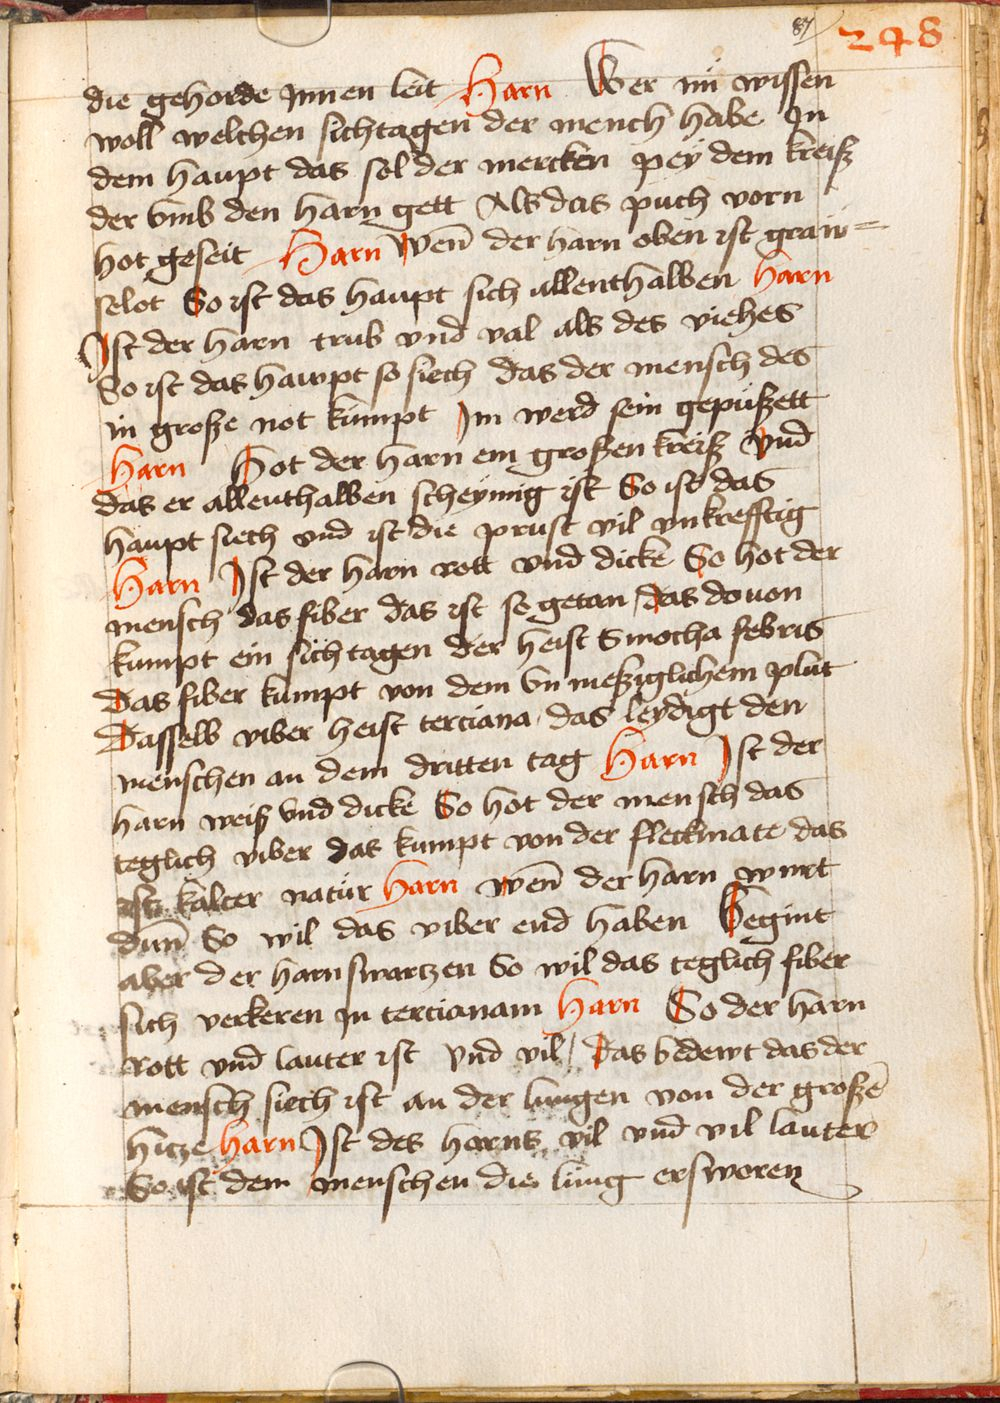 87 248
die gehorde Jnnen leit Harn Wer nu wissen
woll welchen sichtagen der mench habe Jn
dem haupt das sol der mercken pey dem kreiß
der vmb den harn gett Als das puch vorn
hot geseit Harn Wen̄ der harn oben ist graw=
selot So ist das haupt sich allenthalben harn
Jst der harn trub vnd val als des viehes
So ist das hawpt so siech das der mensch des
in große not kumpt Jm werd sein gepußett
Harn Hot der harn ein großen kreiß Vnd
das er allenthalben scheymig ist So ist das
haupt siech vnd ist die prust vil vnkrefftig
Harn Jst der harn rott vnd dicke So hot der
mensch das fiber das ist so getan das douon
kumpt ein sichtagen der heist Smocha febris
Das fiber kumpt von dem vn meßiglichem plut
Dasselb viber heist terciana das leydigt den
menschen an dem dritten tag Harn Jst der
harn weiß vnd dicke So hot der mensch das
teglich viber das kumpt von der fleckmate das
ist kalter natur harn Wen̄ der harn wurt
dun̄ So wil das viber end haben Begint
aber der harn swartzen So wil das teglich fiber
sich verkeren jn tercianam harn So der harn
Rott vnd lauter ist Vnd vil / Das bedewt das der
mensch siech ist an der lungen von der große̅
hitze harn Jst des harns vil vnd vil lauter
So ist dem menschen die lung ersworen